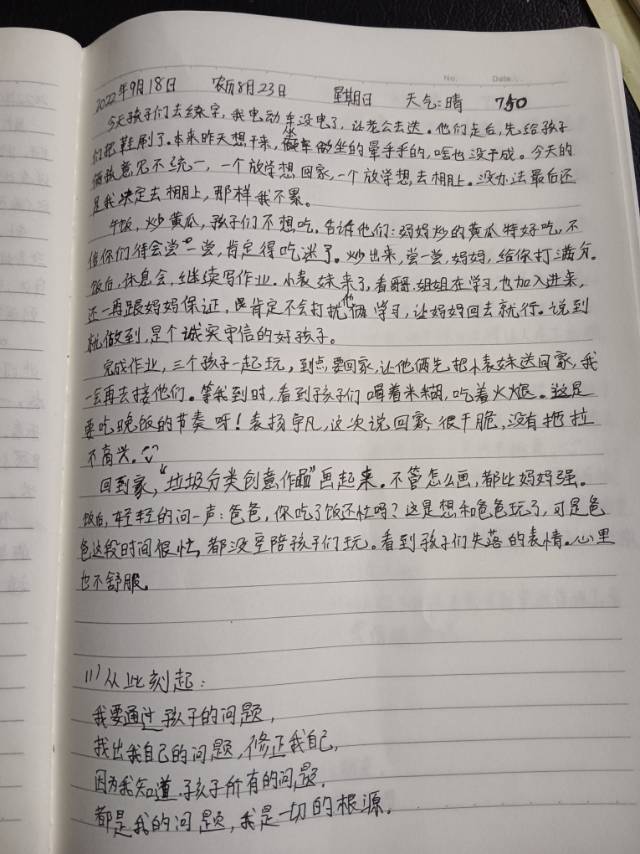 No. Date.
2022年9月18日 农历8月23日 星期日 天气:晴 750
今天孩子们去练字,我电动车没电了,让老公去送。他们走后,先给孩子
们把鞋刷了。本来昨天想干来,坐车坐的晕乎乎的,啥也没干成。今天的
俩孩意见不统一,一个放学想回家,一个放学想去相上。没办法最后还
是我决定去相上,那样我不累。
午饭,炒黄瓜,孩子们不想吃。告诉他们:妈妈炒的黄瓜特好吃,不
信你们待会尝一尝,肯定得吃迷了。炒出来,尝一尝,妈妈,给你打满分。
饭后,休息会,继续写作业。小表妹来了,看哥哥、姐姐在学习,也加入进来,
还一再跟妈妈保证,肯定不会打扰他俩学习,让妈妈回去就行。说到
就做到,是个诚实守信的好孩子。
完成作业,三个孩子一起玩,到点要回家,让他俩先把小表妹送回家,我
一会再去接他们。等我到时,看到孩子们喝着米糊,吃着火烧。这是
要吃晚饭的节奏呀!表扬宇凡,这次说回家很干脆,没有拖拉
不高兴。
回到家,“垃圾分类创意作画”画起来。不管怎么画,都比妈妈强。
饭后,轻轻的问一声:爸爸,你吃了饭还忙吗?这是想和爸爸玩了,可是爸
爸这段时间很忙,都没空陪孩子们玩。看到孩子们失落的表情。心里
也不舒服。
(1)从此刻起:
我要通过孩子的问题,
找出我自己的问题,修正我自己,
因为我知道孩子所有的问题,
都是我的问题,我是一切的根源。